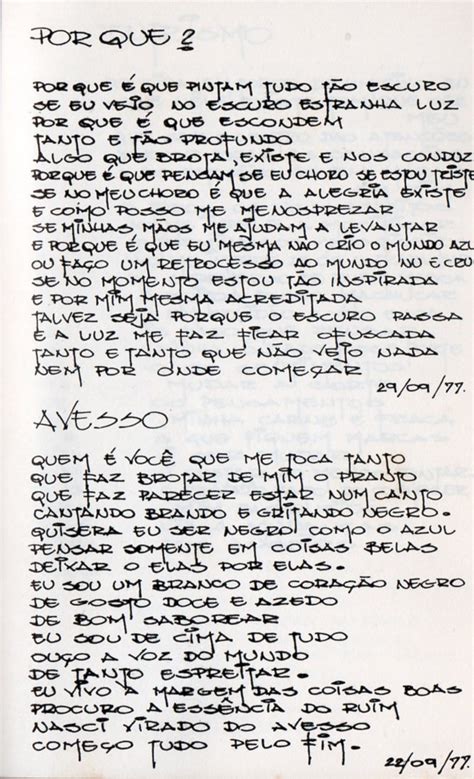 POR QUE ?
POR QUE É QUE PINTAM TUDO TÃO ESCURO
SE EU VEJO NO ESCURO ESTRANHA LUZ
POR QUE É QUE ESCONDEM
TANTO E TÃO PROFUNDO
ALGO QUE BROTA, EXISTE E NOS CONDUZ
PORQUE É QUE PENSAM SE EU CHORO SE ESTOU TRISTE
SE NO MEU CHORO É QUE A ALEGRIA EXISTE
E COMO POSSO ME MENOSPREZAR
SE MINHAS MÃOS ME AJUDAM A LEVANTAR
E PORQUE É QUE EU MESMA NÃO CRIO O MUNDO AZUL
OU FAÇO UM RETROCESSO AO MUNDO NU E CRU
SE NO MOMENTO ESTOU TÃO INSPIRADA
E POR MIM MESMA ACREDITADA
TALVEZ SEJA PORQUE O ESCURO PASSA
E A LUZ ME FAZ FICAR OFUSCADA
TANTO E TANTO QUE NÃO VEJO NADA
NEM POR ONDE COMEÇAR
29/09/77.
AVESSO
QUEM É VOCÊ QUE ME TOCA TANTO
QUE FAZ BROTAR DE MIM O PRANTO
QUE FAZ PARECER ESTAR NUM CANTO
CANTANDO BRANDO E GRITANDO NEGRO.
QUISERA EU SER NEGRO COMO O AZUL
PENSAR SOMENTE EM COISAS BELAS
DEIXAR O ELAS POR ELAS.
EU SOU UM BRANCO DE CORAÇÃO NEGRO
DE GOSTO DOCE E AZEDO
DE BOM SABOREAR
EU SOU DE CIMA DE TUDO
OUÇO A VOZ DO MUNDO
DE TANTO ESPREITAR.
EU VIVO A MARGEM DAS COISAS BOAS
PROCURO A ESSÊNCIA DO RUIM
NASCI VIRADO DO AVESSO
COMEÇO TUDO PELO FIM.
22/09/77.